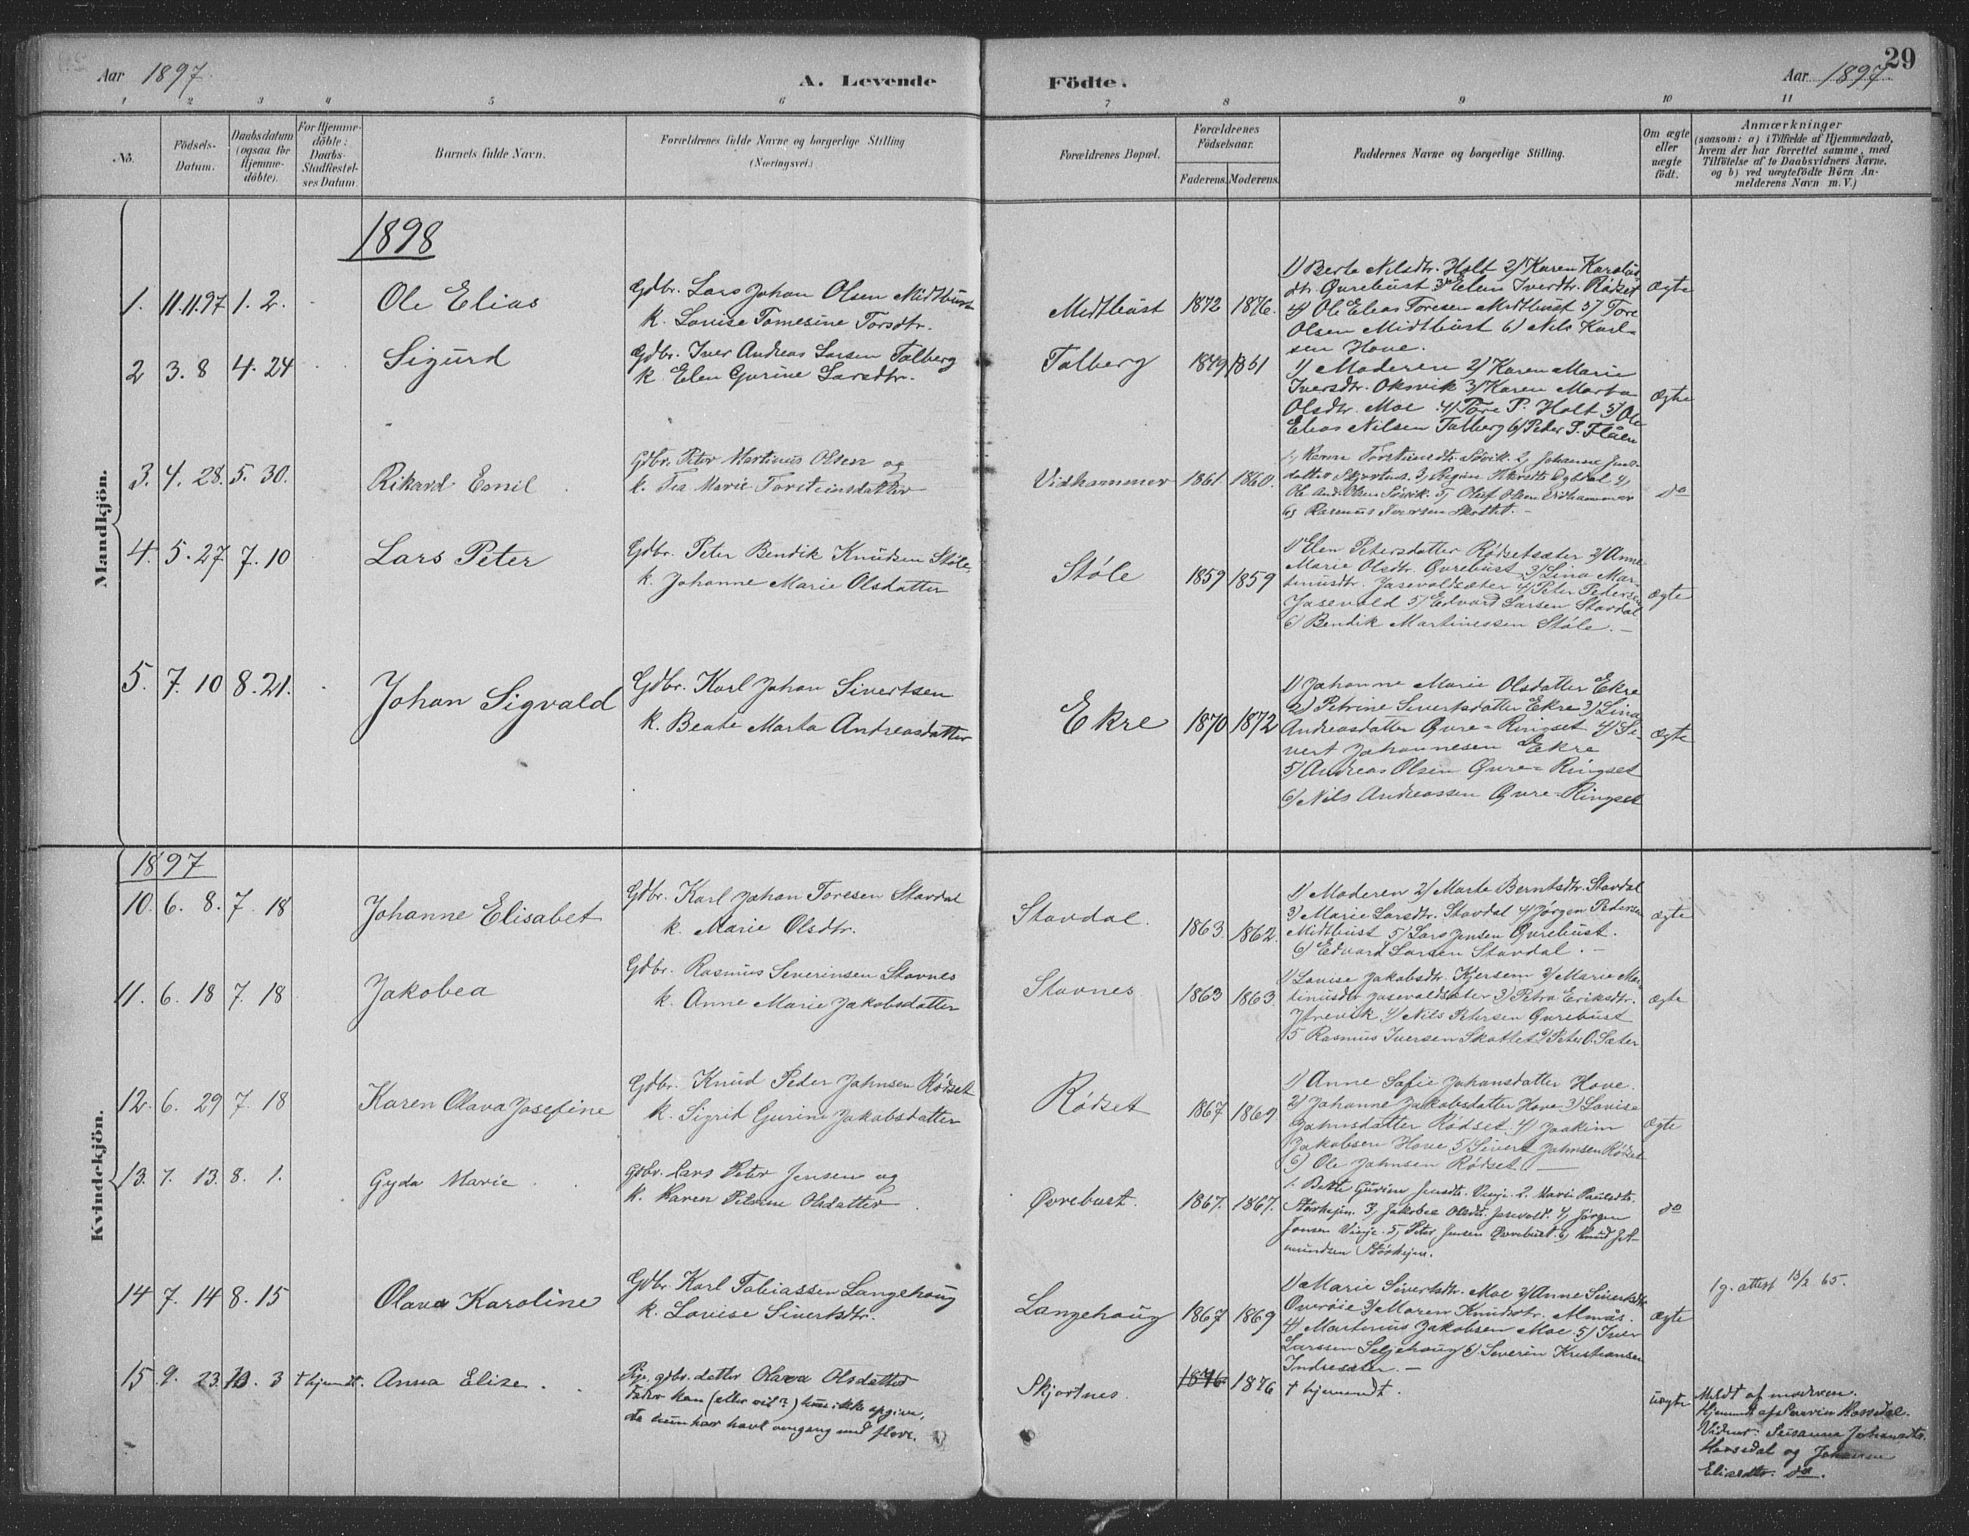 29
Aar 1897.
A. Levende
Födte.
Aar 1897
1 2 3 4 5 6 7 8 9 10 11
No.
Födsels-
Datum.
Daabsdatum
(ogsaa for
Hjemme-
döbte).
For Hjemme-
döbte:
Daabs-
Stadfæstel-
ses Datum.
Barnets fulde Navn.
Forældrenes fulde Navne og borgerlige Stilling
(Næringsvei.)
Forældrenes Bopæl.
Forældrenes
Födselsaar.
Faderens. Moderens.
Faddernes Navne og borgerlige Stilling.
Om ægte
eller
uægte
födt.
Anmærkninger
(saasom: a) i Tilfælde af Hjemmedaab,
hvem der har forrettet samme, med
Tilföielse af to Daabsvidners Navne,
og b) ved uægtefödte Börn An-
melderens Navn m. V.)
Mandkjön.
1898
1. 11.11.97 1. 2. Ole Elias
Gdbr. Lars Johan Olsen Midthust
k. Lovise Tomesine Torsdtr.
Midthust 1872 1876.
1) Berte Nilsdtr. Holt 2) Karen Karolus-
dtr. Øvrebust 3) Elen Iverdtr. Rødset
4) Ole Elias Toresen Midthust 5) Tore
Olsen Midthust 6) Nils Karl-
sen Hove.
Ægte
2 3. 8 4. 24 Sigurd
Gdbr. Iver Andreas Larsen Talberg
k. Elen Gurine Larsdtr.
Talberg 1849 1851
1) Moderen 2) Karen Marie
Iversdtr. Oksvik 3) Karen Marta
Olsdtr. Moe 4) Tore P. Holt 5) Ole
Elias Nilsen Talberg 6) Peder S. Flåen
Ægte
3. 4. 28. 5. 30. Rikard Emil
Gdbr. Peter Martinus Olsen og
k. Marie Torsteinsdatter
Vidhammer 1861 1860.
2, Johanne
datter Skjortnes. 3,
Ole And. Olsen Søvik. 5, Oluf Olsen Vidhammer
6, Rasmus Iversen Skottet. -
do
4. 5. 27 7. 10 Lars Peter
Gdbr. Peter Bendik Knudsen Støle,
k. Johanne Marie Olsdatter
Støle 1859 1859
1) Elen Petersdatter Rødsetsæter 2) Anne
Marie Olsdtr. Øvrebust 3) Lina Mar-
tinusdtr. Jasevoldsæter 4) Peter Pedersen
Jasevold 5) Edvard Larsen Stavdal
6) Bendik Martinussen Støle. -
Ægte
5. 7. 10 8. 21. Johan Sigvald
Gdbr. Karl Johan Sivertsen
k. Beate Marta Andreasdatter
Ekre 1870 1872
1) Johanne Marie Olsdatter Ekre
2) Petrine Sivertsdatter Ekre 3) Lina
Andreasdatter Øvre-Ringset 4) Si-
vert Johannesen Ekre
5) Andreas Olsen Øvre-Ringset
6) Nils Andreassen Øvre-Ringset
Ægte
Kvindekjön.
1897
10. 6. 8. 7. 18 Johanne Elisabet
Gdbr. Karl Johan Toresen Stavdal
k. Marie Olsdtr.
Stavdal. 1863 1862.
1) Moderen 2) Marte Berntsdtr. Stavdal
3) Marie Larsdtr. Stavdal 4) Jørgen Pedersen
Midthust 5) Lars Jensen Øvrebust.
6) Edvard Larsen Stavdal. -
Ægte
11. 6. 18 7. 18 Jakobea
Gdbr. Rasmus Severinsen Stavnes
k. Anne Marie Jakobsdatter
Stavnes 1863 1863
1) Lovise Jakobsdtr. Kjersem 2) Marie Mar-
tinusdtr Jasevoldsæter 3) Petra Eriksdtr.
Ytrevik 4) Nils Petersen Øvrebust
5 Rasmus Iversen Skottet 6) Peter O. Sæter
Ægte
12. 6. 29 7. 18 Karen Olava Josefine
Gdbr. Knud Peder Johnsen Rødset
k. Sigrid Gurine Jakobsdatter
Rødset 1867 1869
1) Anne Sofie Johansdatter Hove.
2) Johanne Jakobsdatter Hove 3) Lovise
Johnsdatter Rødset 4) Joakim
Jakobsen Hove 5) Sivert Johnsen Rødset
6) Ole Johnsen Rødset. -
Ægte
13. 7. 13. 8. 1. Gyda Marie
Gdbr. Lars Peter Jensen og
k. Karen Petrine Olsdatter
Øvrebust. 1867. 1867.
1. Berte Gurine Jensdtr. Vinje. 2. Marie Paulsdtr.
Størhejm. 3, Jakobea Olsdtr. Jasevold. 4, Jørgen
Jonsen Vinje. 5, Peter Jensen Øvrebust. 6, Knud
Størhejm.
do
14 7. 14 8. 15 Olava Karoline
Gdbr. Karl Tobiassen Langehaug
k. Lovise Sivertsdtr.
Langehaug 1867 1869
1) Marie Sivertsdtr. Moe 2) Anne Sivertsdtr
Overøie 3) Maren Knudsdtr. Almås.
4) Martinus Jakobsen Moe 5) Iver
Larssen Seljehaug 6) Severin Kristiansen
Indresæter. -
Ægte
1 g. attest 13/2 65.
15. 9. 23. 10. 3 † hjemdt. Anna Elise.
Pige, gdbr. datter Olava Olsdatter
Fader kan (eller vil?) hun ikke opgive,
da hun har havt omgang med flere.
Skjortnes. 1876 1876
† hjemdt.
uægte
Meldt af moderen.
Hjemdt af Severin Rossdal.
Vidner: Susanna Johansdtr.
og Johanne
Elisedtr. do.